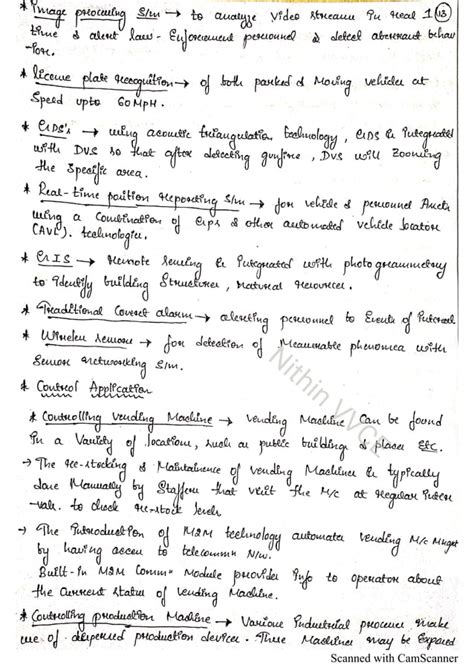 * Image processing S/m → to analyze Video streams in real 113
time & alert law-Enforcement personnel & detect aberrant behav
-ior.
* license plate recognition → of both parked & Moving vehicles at
Speed upto 60MPH.
* GDS's → using acoustic triangulation technology, GDS is Integrated
with DVS so that after detecting gunfire, DVS will Zooming
the Specific area.
* Real-time position Reporting S/m → for vehicle & personnel
using a Combination of GPS & other automated vehicle locator
(AVL). technologies.
* GIS → Remote sensing is Integrated with photogrammetry
to identify building Structures, natural resources.
* Traditional Covert alarm → alerting personnel to Events of Interest
* Wireless sensors → for detection of Measurable phenomea with
Sensor networking S/m.
* Control Application
* Controlling Vending Machine → Vending Machine Can be found
in a Variety of locations, such as public buildings & places Etc.
→ The re-stocking & Maintainence of vending Machines is typically
done Manually by Staffers that visit the M/c at Regular Inter
-vals. to check re-stock levels
→ The Introduction of M2M technology automates vending M/c Mngmt
by having access to telecommn N/w.
Built-in M2M Commn Module provides info to operator about
the Current status of Vending Machine.
* Controlling production Machine → Various Industrial process make
use of dispersed production devices. These Machines may be Exposed
Nithin VVCE
Scanned with CamScanner